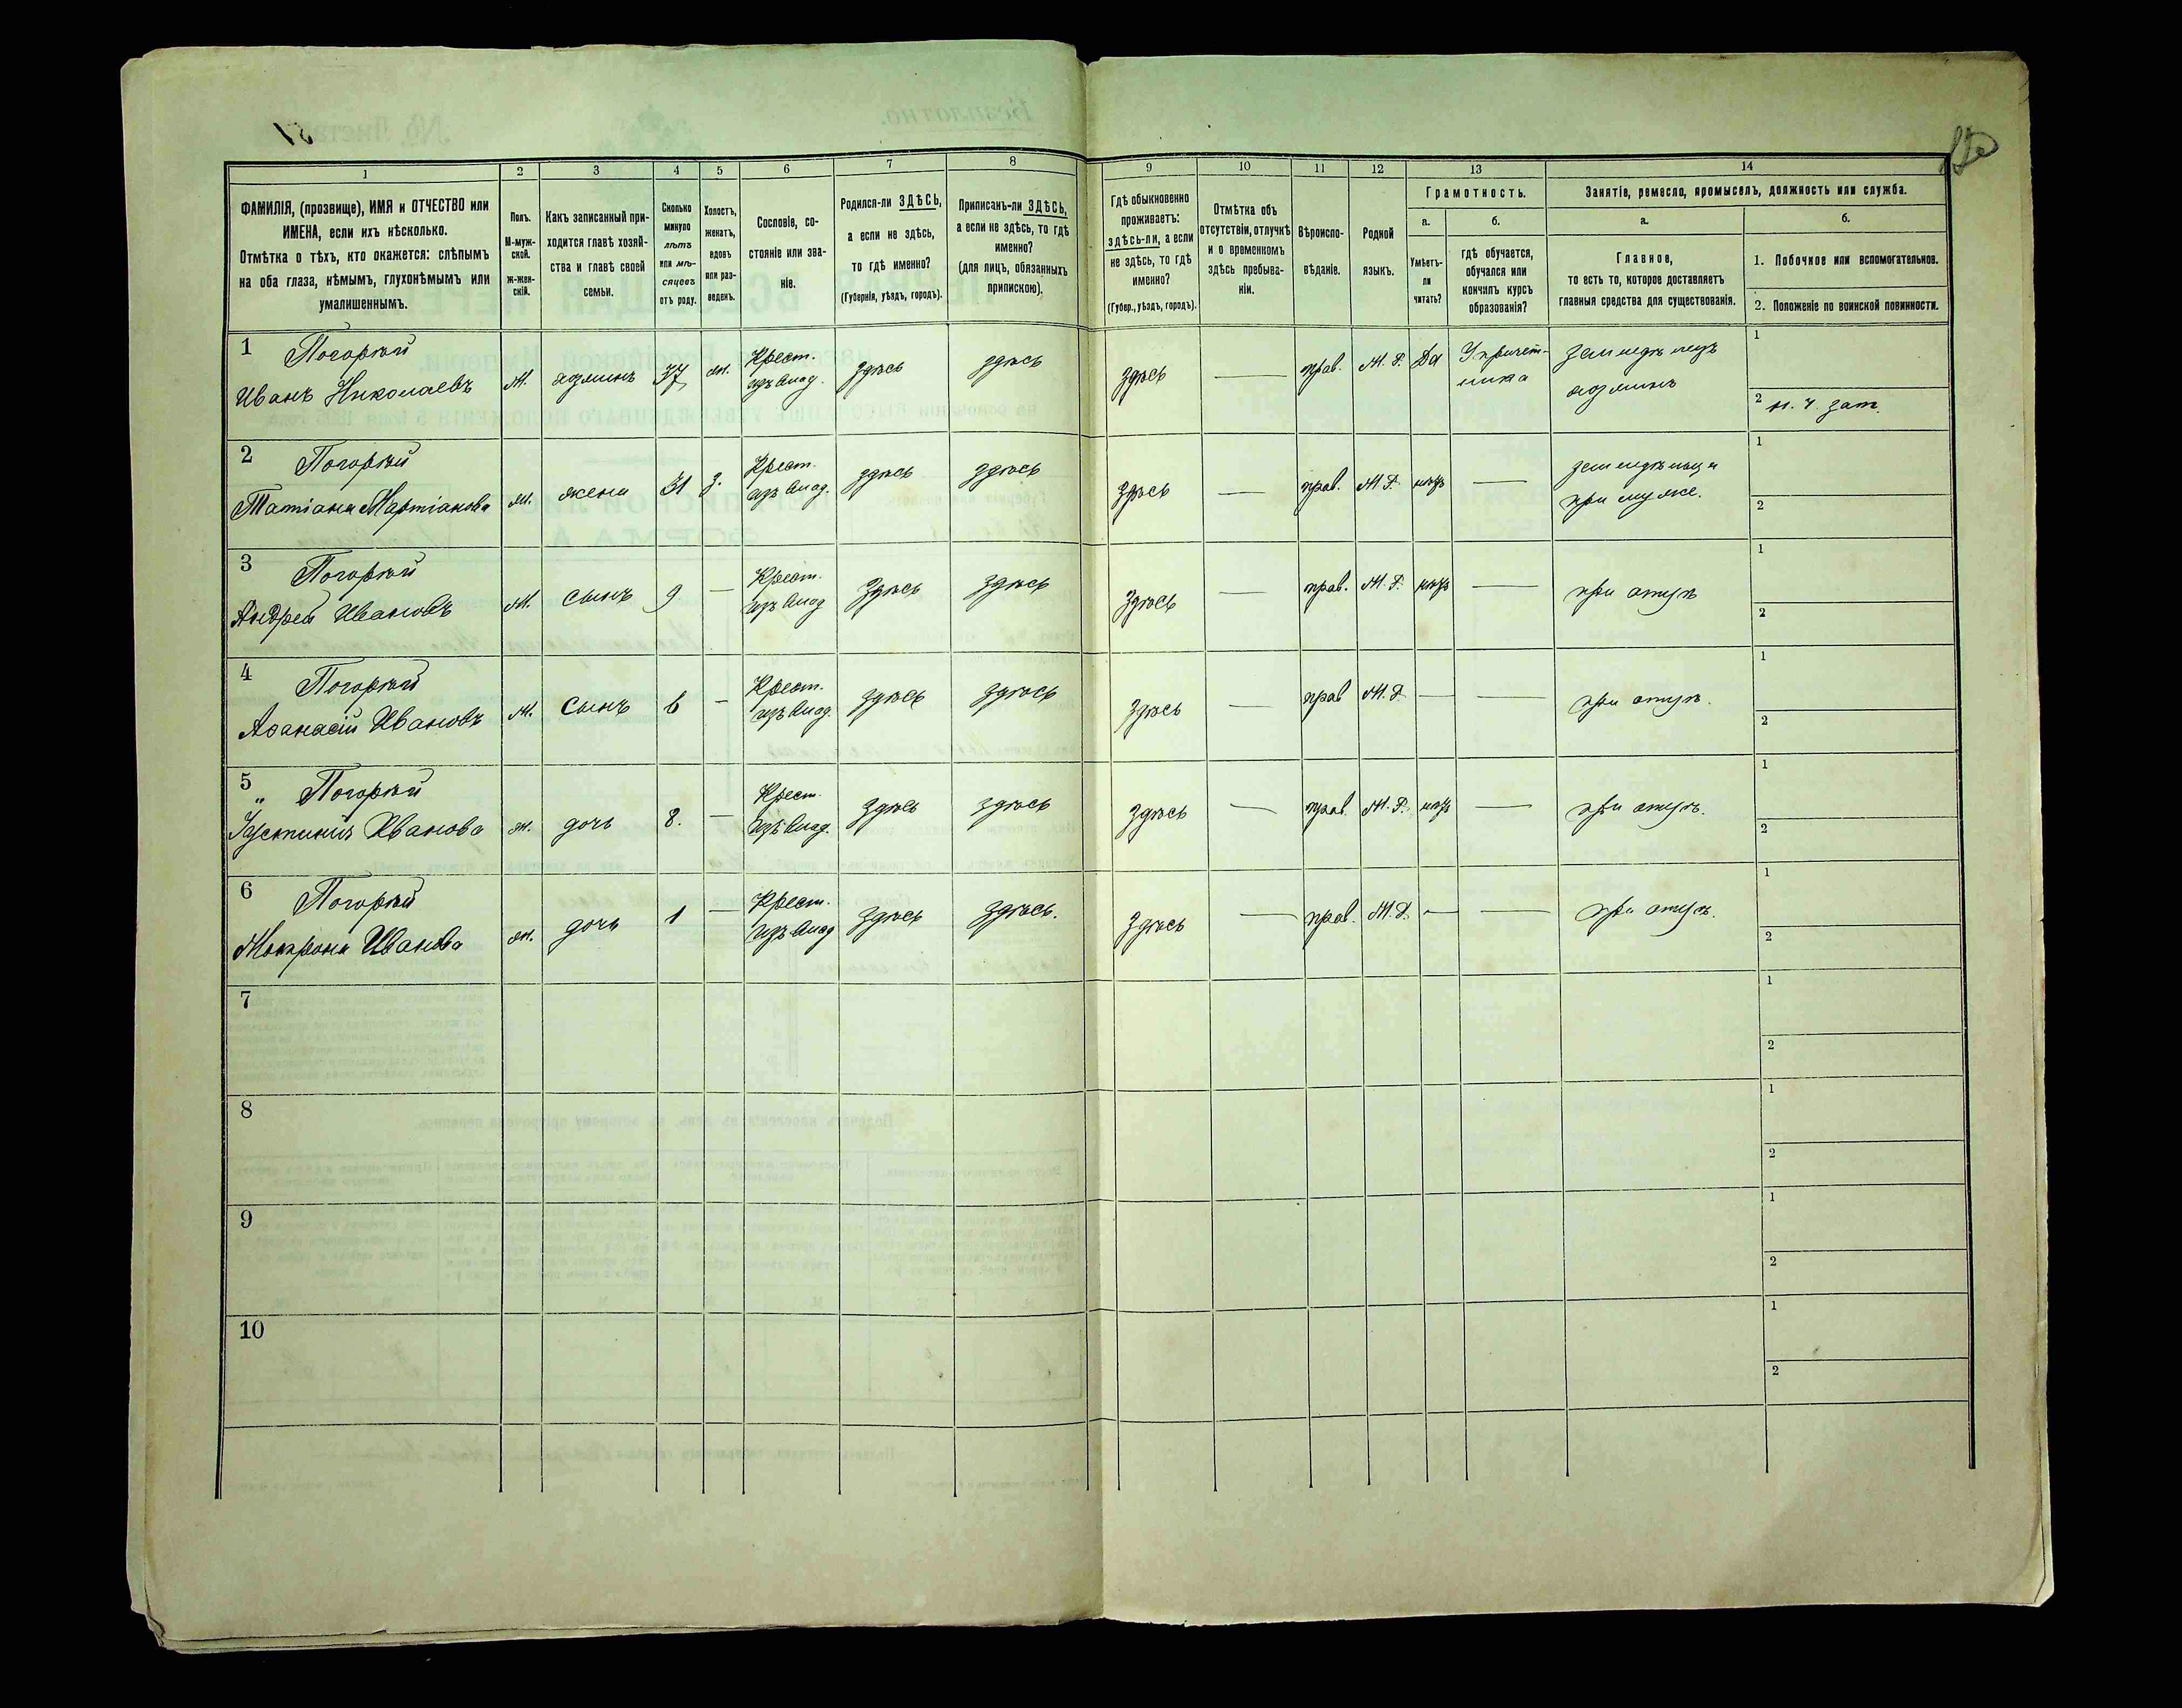 1 2 3 4 5 6 7 8 9 10 11 12 13 14
ФАМИЛІЯ, (прозвище), ИМЯ и ОТЧЕСТВО или
ИМЕНА, если ихъ нѣсколько.
Отмѣтка о тѣхъ, кто окажется: слѣпымъ
на оба глаза, нѣмымъ, глухонѣмымъ или
умалишеннымъ.
Полъ.
М-муж-
ской.
ж-жен-
скій.
Какъ записанный при-
ходится главѣ хозяй-
ства и главѣ своей
семьи.
Сколько
минуло
лѣтъ
или мѣ-
сяцевъ
отъ роду.
Холостъ,
женатъ,
вдовъ
или раз-
веденъ.
Сословіе, со-
стояніе или зва-
ніе.
Родился-ли ЗДѢСЬ,
а если не здѣсь,
то гдѣ именно?
(Губернія, уѣздъ, городъ).
Приписанъ-ли ЗДѢСЬ,
а если не здѣсь, то гдѣ
именно?
(для лицъ, обязанныхъ
припискою).
Гдѣ обыкновенно
проживаетъ:
здѣсь-ли, а если
не здѣсь, то гдѣ
именно?
(Губер., уѣздъ, городъ).
Отмѣтка объ
отсутствіи, отлучкѣ
и о временномъ
здѣсь пребыва-
ніи.
Вѣроиспо-
вѣданіе.
Родной
языкъ.
Грамотность.
а.
Умѣетъ-
ли
читать?
б.
гдѣ обучается,
обучался или
кончилъ курсъ
образованія?
Занятіе, ремесло, промыселъ, должность или служба.
а.
Главное,
то есть то, которое доставляетъ
главныя средства для существованія.
б.
1. Побочное или вспомогательное.
2. Положеніе по воинской повинности.
1 Погорѣй
Иванъ Николаевъ м. хозяинъ 37 ж. Крест. изъ влад. здѣсь здѣсь здѣсь — прав. М. Р. Да У причет-
ника земледѣлецъ
хозяинъ
1
2 н. ч. зап.
2 Погорѣй
Татіана Мартіанова ж. жена 31 з. Крест. изъ влад. здѣсь здѣсь здѣсь — прав. М. Р. нѣтъ —
при мужѣ.
1
2
3 Погорѣй
Андрей Ивановъ м. сынъ 9 — Крест. изъ влад здѣсь здѣсь здѣсь — прав. М. Р. нѣтъ — при отцѣ
1
2
4 Погорѣй
Аѳанасій Ивановъ м. сынъ 6 — Крест. изъ влад. здѣсь здѣсь здѣсь — прав М. Р. — — при отцѣ.
1
2
5 Погорѣй
Иванова ж. дочь 8. — Крест. изъ влад. здѣсь здѣсь здѣсь — прав. М. Р. нѣтъ — при отцѣ.
1
2
6 Погорѣй
Иванова ж. дочь 1 — Крест. изъ влад здѣсь здѣсь. здѣсь — прав. М. Р. — — при отцѣ.
1
2
7
1
2
8
1
2
9
1
2
10
1
2